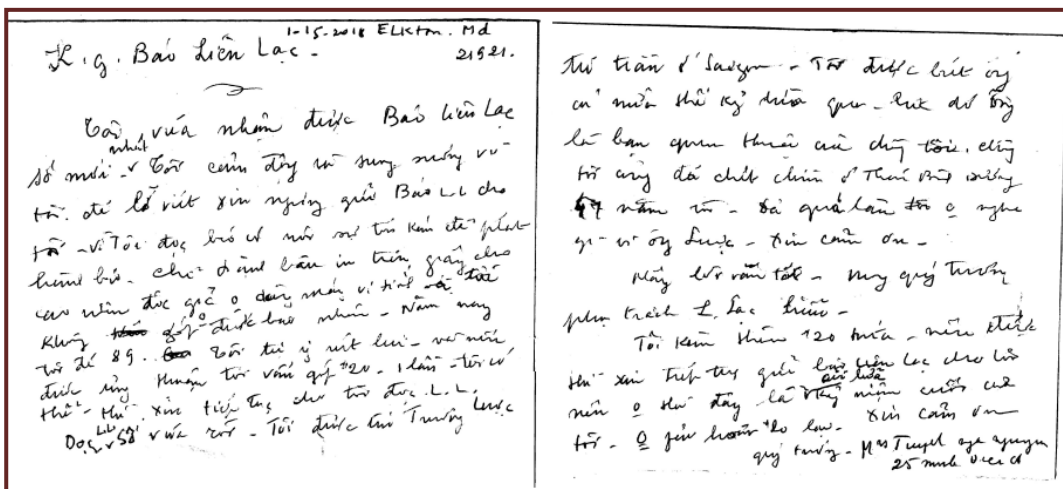 1-15-2018 Elkton. Md
21921.
K.g. Báo Liên Lạc -
Tôi vừa nhận được Báo Liên Lạc
số mới nhất Tôi cảm động và sung sướng vì
tôi đã lỡ viết xin ngừng gửi Báo L.L cho
tôi - vì Tôi đọc báo có nói sự tốn kém để phát
hành báo. chỉ dành bản in trên giấy cho
cao niên độc giả o dùng máy vi tính
không được bao nhiêu - Năm nay
tôi đã 89. Tôi tự ý rút lui - và nếu
được ủng thuận tôi vẫn góp $20. 1 lần - tôi có
thể - thì xin tiếp tục cho tôi đọc L.L.
Đọc L.L số vừa rồi - Tôi được tin Trương Lược
từ trần ở Saigon - Tôi được biết ông
cả nửa thế kỷ vừa qua - lúc đó Ông
là bạn quen thuộc của chúng tôi. chúng
tôi cũng đã chắt chiu ở Thái Bình Dương
47 năm rồi - đã quá lâu o nghe
gì về ông Lược - Xin cảm ơn -
Mấy lời vắn tắt - mong quý trưởng
phụ trách L. Lạc hiểu -
Tôi kèm thêm $20 nữa - nếu được
thì xin tiếp tục gửi báo Liên Lạc cho tôi
nếu o thì đây là kỷ niệm cuối của
tôi - Xin cảm ơn
quý trưởng - Mrs Tuyet nga nguyen
25